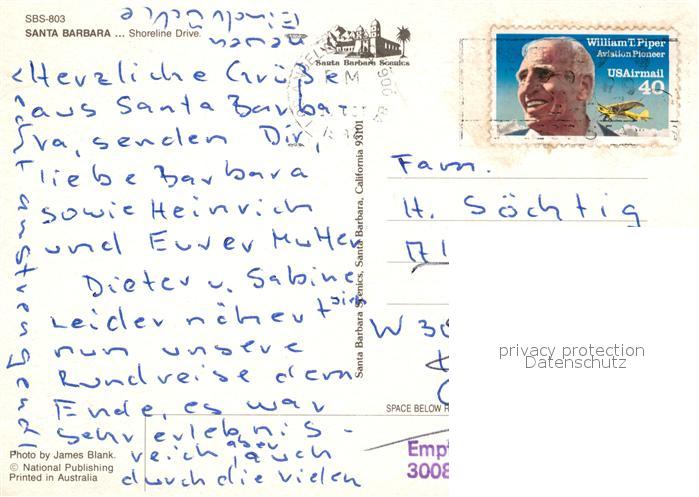 SBS-803
SANTA BARBARA ... Shoreline Drive.
Santa Barbara Scenics
William T. Piper
Aviation Pioneer
USAirmail
40
Herzliche Grüße
aus Santa Barba-
ra, senden Dir,
liebe Barbara
sowie Heinrich
und Eurer Mutter
Dieter u. Sabine
Leider nähert sich
nun unsere
Rundreise dem
Ende, es war
sehr erlebnis-
reich, aber auch
durch die vielen
neuen
Eindrücke
Santa Barbara Scenics, Santa Barbara, California 93101
Fam.
H. Söchtig
W 30
SPACE BELOW R
Emp
3008
privacy protection
Datenschutz
Photo by James Blank.
© National Publishing
Printed in Australia